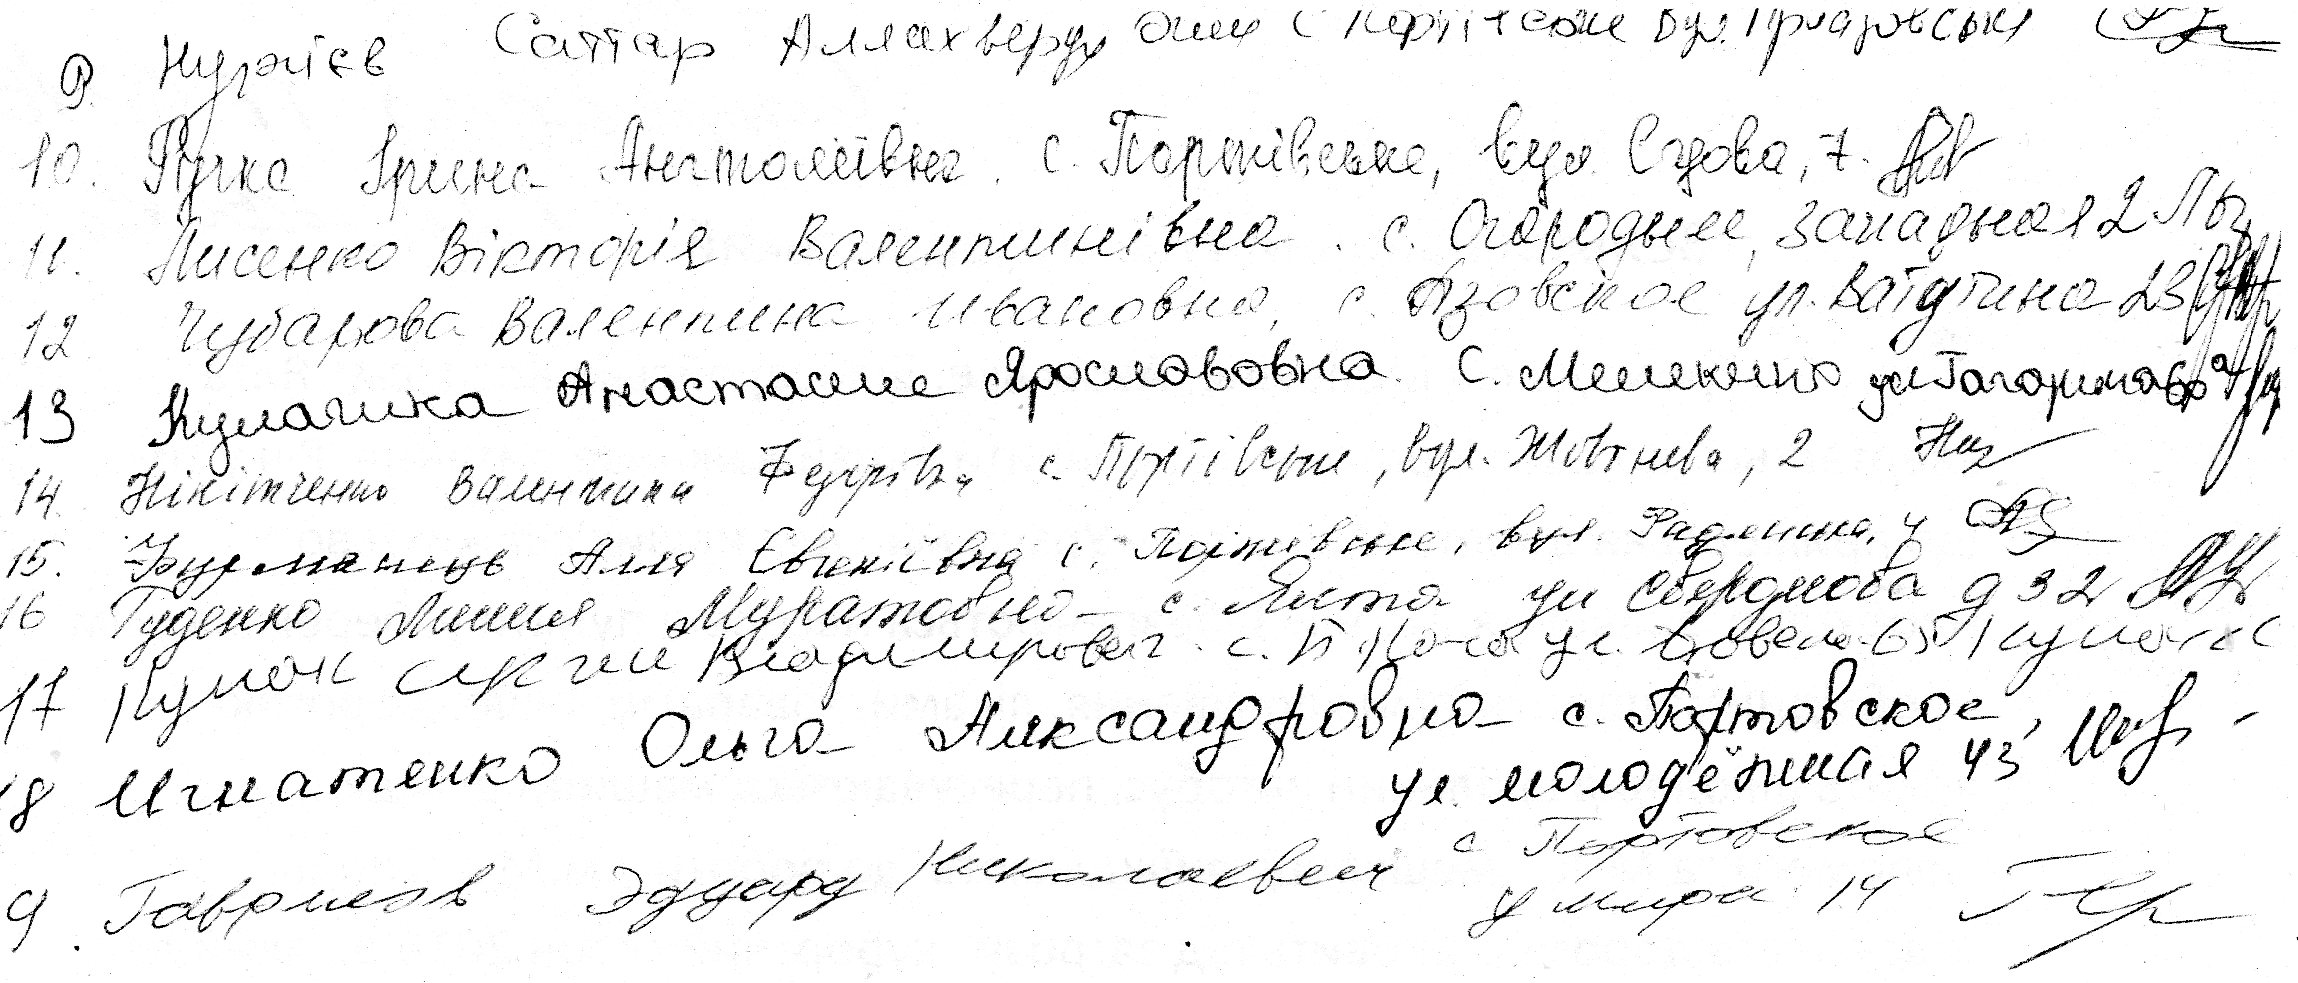 9. Нуріїєв Саттар Аллахверди с. Портівське вул. Приазовська
10. Пучка Ірина Анатоліївна. с. Портівське, вул. Садова, 7.
11. Лисенко Вікторія Валентинівна. с. Огороднее, Западная 2
12 Чубарова Валентина Ивановна, с. Азовское ул. Ватутина 23
13 Кулагина Анастасие Ярославовна. С. Мелекино ул Гагорина
14. Нікітченко Валентина Федорівна с. Портівське, вул. Жовтнева, 2
15. Алла Євгеніївна с. Портівське, вул. Радужна, 4
16 Гуденко Лилия Муратовна с. Ялта ул Свердлова д 32
17 Кулак Сергей Владимирович с. ул. 65 Кулак
18 Игнатенко Ольга Александровна с. Портовское,
ул. молодёжная 43
с Портовское
9. Гаврилов Эдуард Николаевич у мира 14